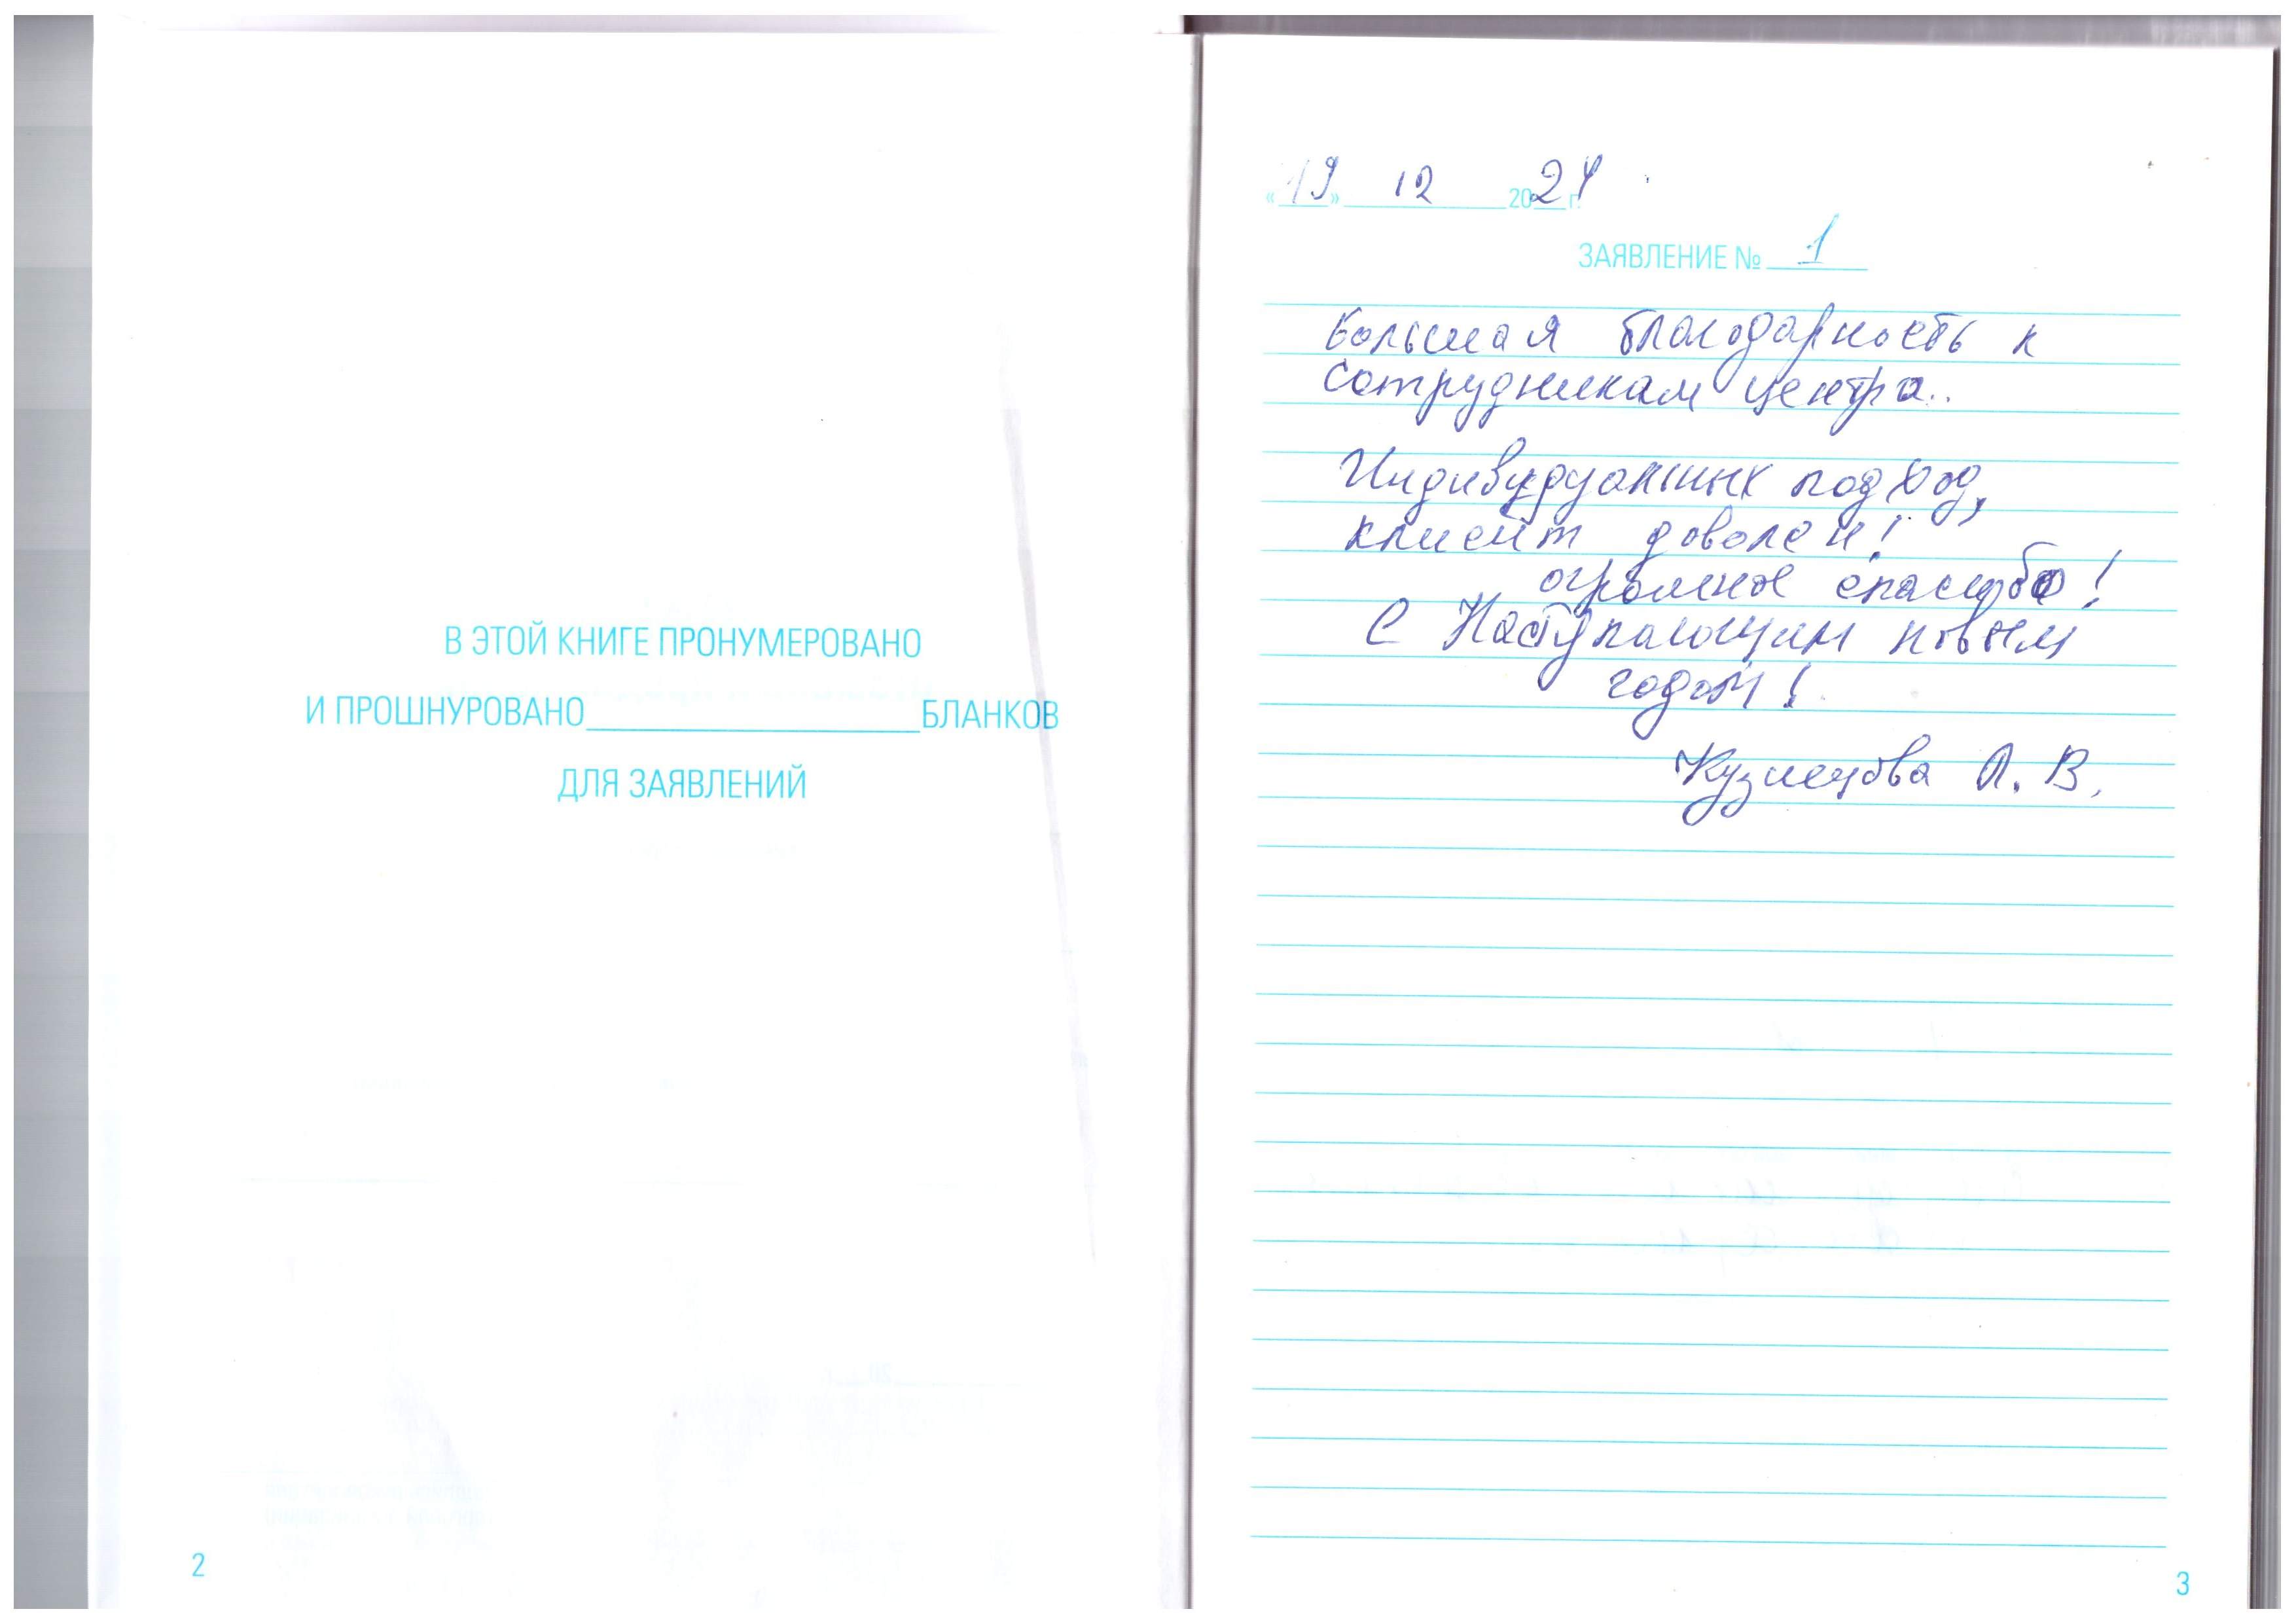 В ЭТОЙ КНИГЕ ПРОНУМЕРОВАНО
И ПРОШНУРОВАНО____________БЛАНКОВ
ДЛЯ ЗАЯВЛЕНИЙ
2
«19» 12 2024 г.
ЗАЯВЛЕНИЕ № 1
Большая благодарность к
сотрудникам центра..
Индивидуальных подход,
клиент доволен!
огромное спасибо!
С Наступающим новым
годом!
Кузнецова А. В.
3